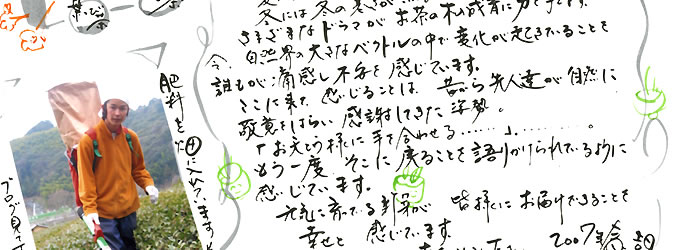 冬には冬の寒さが
さまざまなドラマがお茶の木の成育に力を
自然界の大きなベクトルの中で変化が起きてきたことを
今、誰もが痛感し不安を感じています。
ここに来て感じることは、昔から先人達が自然に
敬意をはらい感謝してきた姿勢。
「お天とう様に手を合わせる……」……。
もう一度、そこに戻ることを語りかけられているように
感じています。
元気に育てる新茶が皆様にお届けできることを
幸せと感じています。
2007年
肥料を
に入れています
ブログ見て下